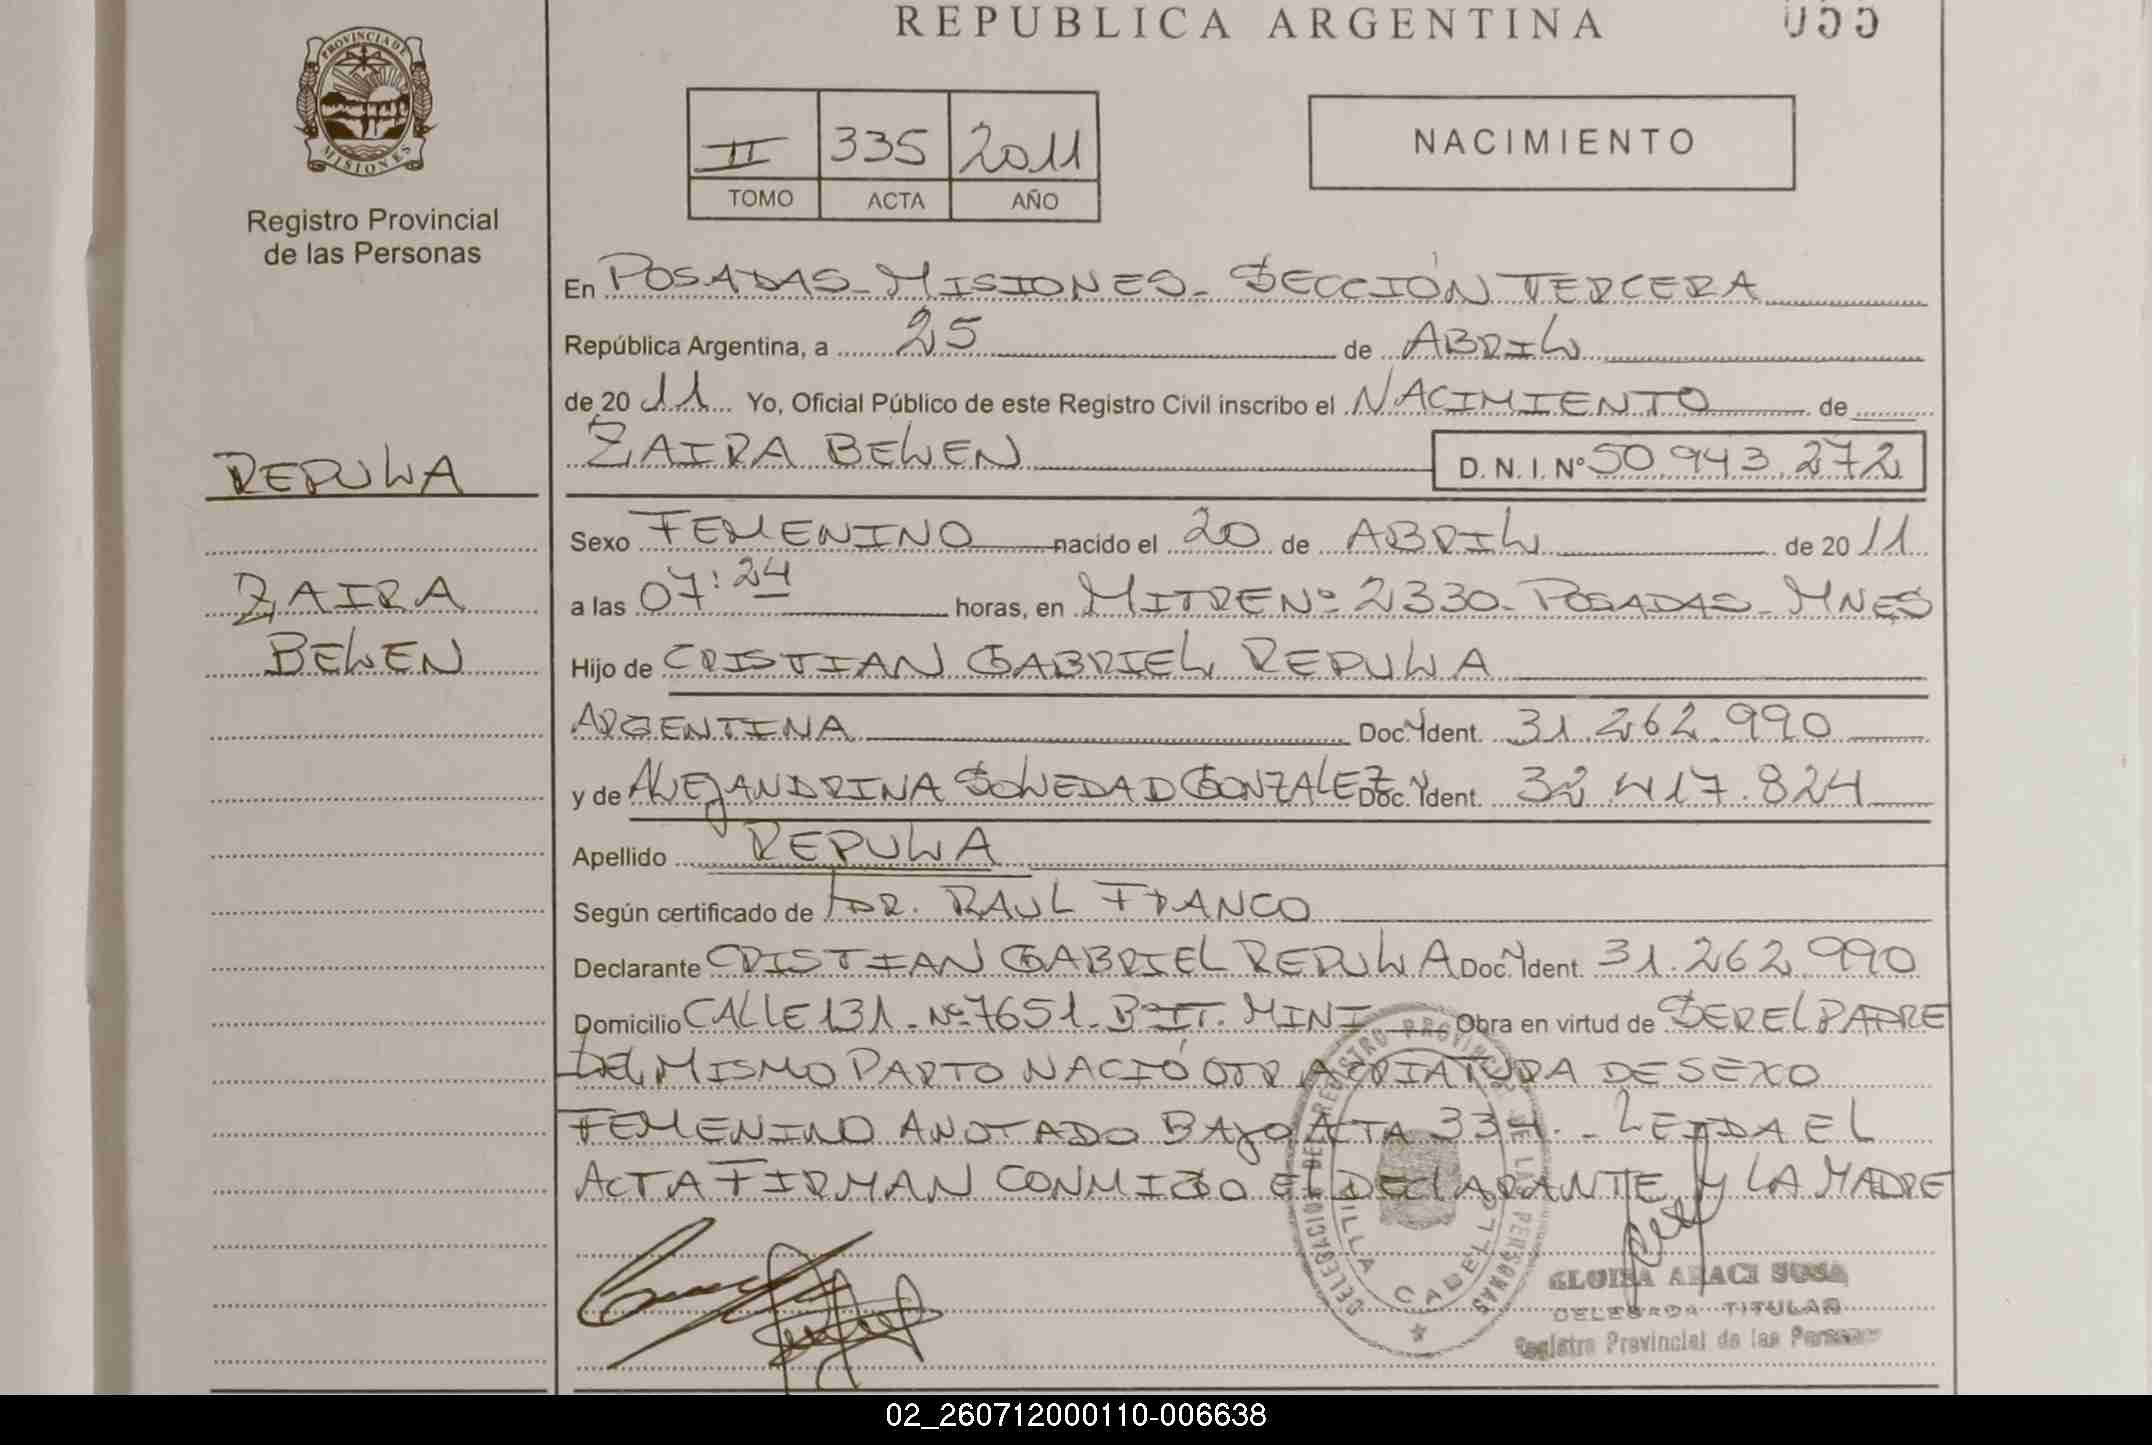 REPUBLICA ARGENTINA
055
PROVINCIA DE MISIONES
Registro Provincial
de las Personas
II 335 2011
TOMO ACTA AÑO
NACIMIENTO
En POSADAS - MISIONES - SECCIÓN TERCERA
República Argentina, a 25 de ABRIL
de 20 11 Yo, Oficial Público de este Registro Civil inscribo el NACIMIENTO de
ZAIRA BELEN D. N. I. N° 50.943.272
REPULA
Sexo FEMENINO nacido el 20 de ABRIL de 20 11
ZAIRA
a las 07:24 horas, en MITRE Nº 2330 - POSADAS - MNES
BELEN
Hijo de CRISTIAN GABRIEL REPULA
ARGENTINA Doc. Ident. 31.262.990
y de ALEJANDRINA SOLEDAD GONZALEZ Doc. Ident. 32.417.824
Apellido REPULA
Según certificado de DR. RAUL FRANCO
Declarante CRISTIAN GABRIEL REPULA Doc. Ident. 31.262.990
Domicilio CALLE 131 - Nº 7651 - Bº IT. MINI Obra en virtud de SER EL PADRE
DEL MISMO PARTO NACIÓ OTRA CRIATURA DE SEXO
FEMENINO ANOTADO BAJO ACTA 334. - LEIDA EL
ACTA FIRMAN CONMIGO EL DECLARANTE Y LA MADRE
DELEGACION DEL REGISTRO PROVINCIAL DE LAS PERSONAS
VILLA CABELLO
ELOISA ARACI SOSA
DELEGADA TITULAR
Registro Provincial de las Personas
02_260712000110-006638